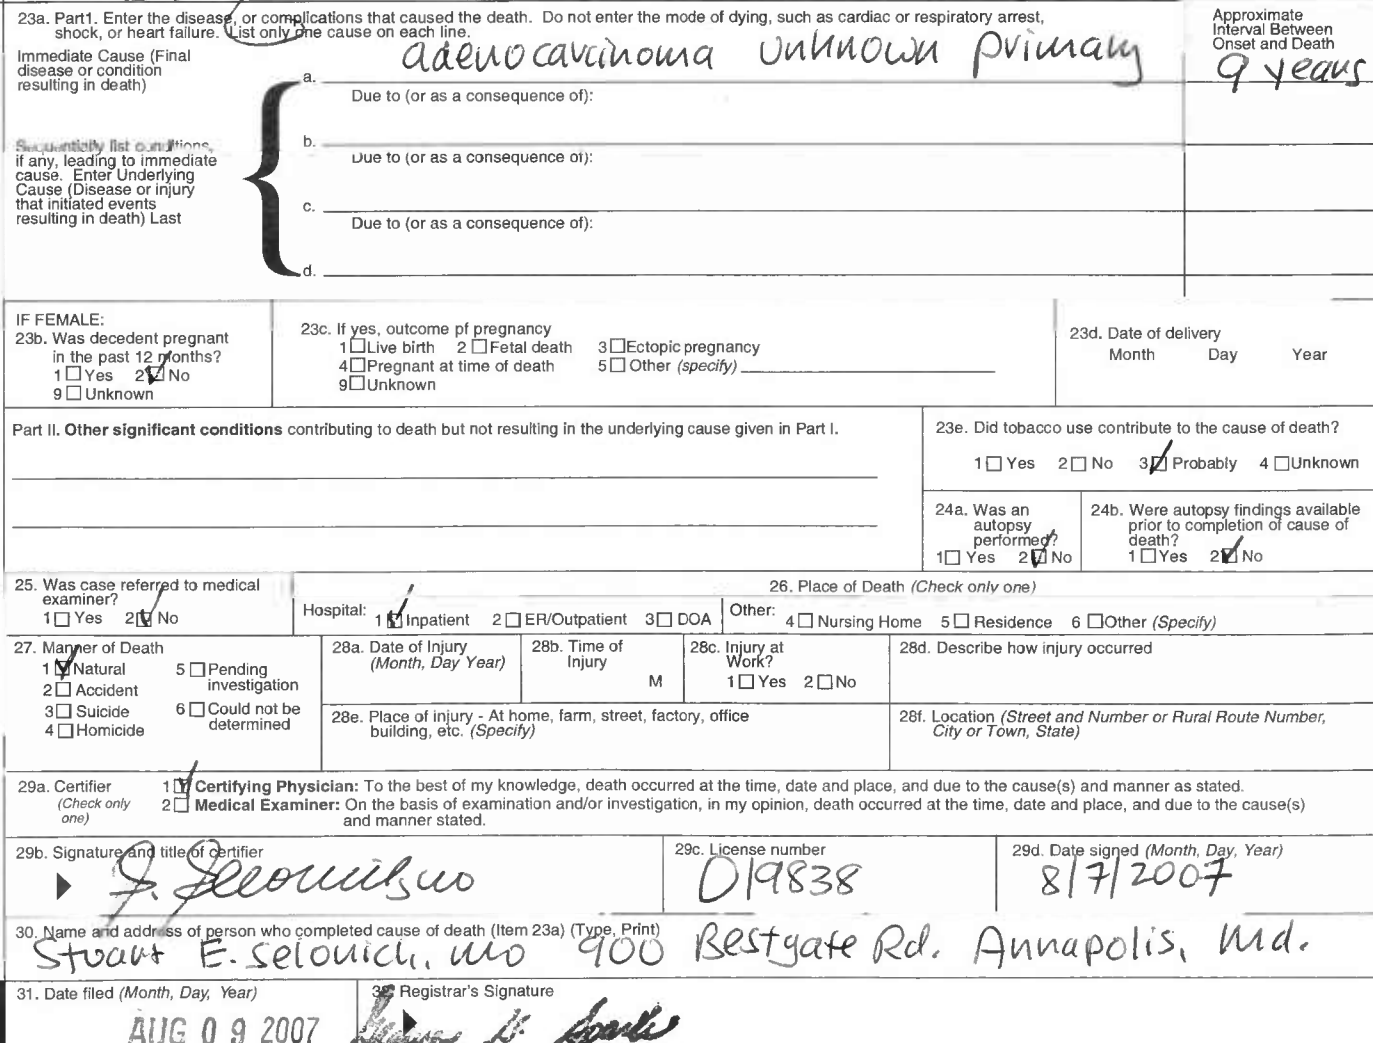 23a. Part1. Enter the disease, or complications that caused the death. Do not enter the mode of dying, such as cardiac or respiratory arrest,
shock, or heart failure. List only one cause on each line.
Approximate
Interval Between
Onset and Death
Immediate Cause (Final
disease or condition
resulting in death)
a. adenocarcinoma unknown primary
9 years
Due to (or as a consequence of):
Sequentially list conditions,
if any, leading to immediate
cause. Enter Underlying
Cause (Disease or injury
that initiated events
resulting in death) Last
b.
Due to (or as a consequence of):
c.
Due to (or as a consequence of):
d.
IF FEMALE:
23b. Was decedent pregnant
in the past 12 months?
1 ☐ Yes 2 ☑ No
9 ☐ Unknown
23c. If yes, outcome pf pregnancy
1 ☐ Live birth 2 ☐ Fetal death 3 ☐ Ectopic pregnancy
4 ☐ Pregnant at time of death 5 ☐ Other (specify)
9 ☐ Unknown
23d. Date of delivery
Month Day Year
Part II. Other significant conditions contributing to death but not resulting in the underlying cause given in Part I.
23e. Did tobacco use contribute to the cause of death?
1 ☐ Yes 2 ☐ No 3 ☑ Probably 4 ☐ Unknown
24a. Was an
autopsy
performed?
1 ☐ Yes 2 ☑ No
24b. Were autopsy findings available
prior to completion of cause of
death?
1 ☐ Yes 2 ☑ No
25. Was case referred to medical
examiner?
1 ☐ Yes 2 ☑ No
26. Place of Death (Check only one)
Hospital: 1 ☑ Inpatient 2 ☐ ER/Outpatient 3 ☐ DOA
Other: 4 ☐ Nursing Home 5 ☐ Residence 6 ☐ Other (Specify)
27. Manner of Death
1 ☑ Natural
2 ☐ Accident
3 ☐ Suicide
4 ☐ Homicide
5 ☐ Pending
investigation
6 ☐ Could not be
determined
28a. Date of Injury
(Month, Day Year)
28b. Time of
Injury
M
28c. Injury at
Work?
1 ☐ Yes 2 ☐ No
28d. Describe how injury occurred
28e. Place of injury - At home, farm, street, factory, office
building, etc. (Specify)
28f. Location (Street and Number or Rural Route Number,
City or Town, State)
29a. Certifier
(Check only
one)
1 ☑ Certifying Physician: To the best of my knowledge, death occurred at the time, date and place, and due to the cause(s) and manner as stated.
2 ☐ Medical Examiner: On the basis of examination and/or investigation, in my opinion, death occurred at the time, date and place, and due to the cause(s)
and manner stated.
29b. Signature and title of certifier
29c. License number
D19838
29d. Date signed (Month, Day, Year)
8/7/2007
30. Name and address of person who completed cause of death (Item 23a) (Type, Print)
Stuart E. Selonick, MD 900 Bestgate Rd. Annapolis, Md.
31. Date filed (Month, Day, Year)
AUG 09 2007
Registrar's Signature